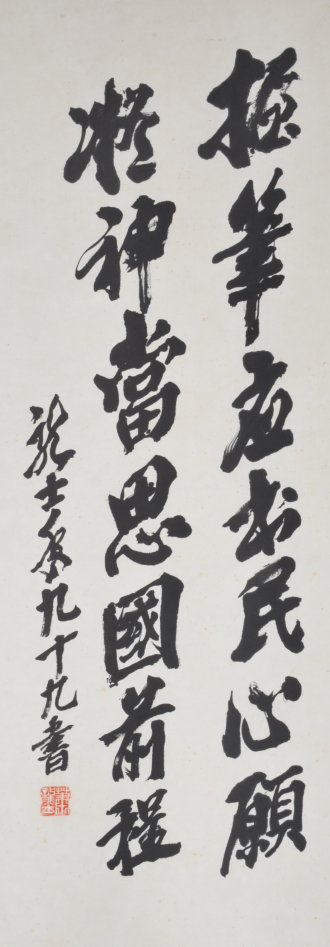 筆应书民心願
凝神當思國前程
龍士年九十九書